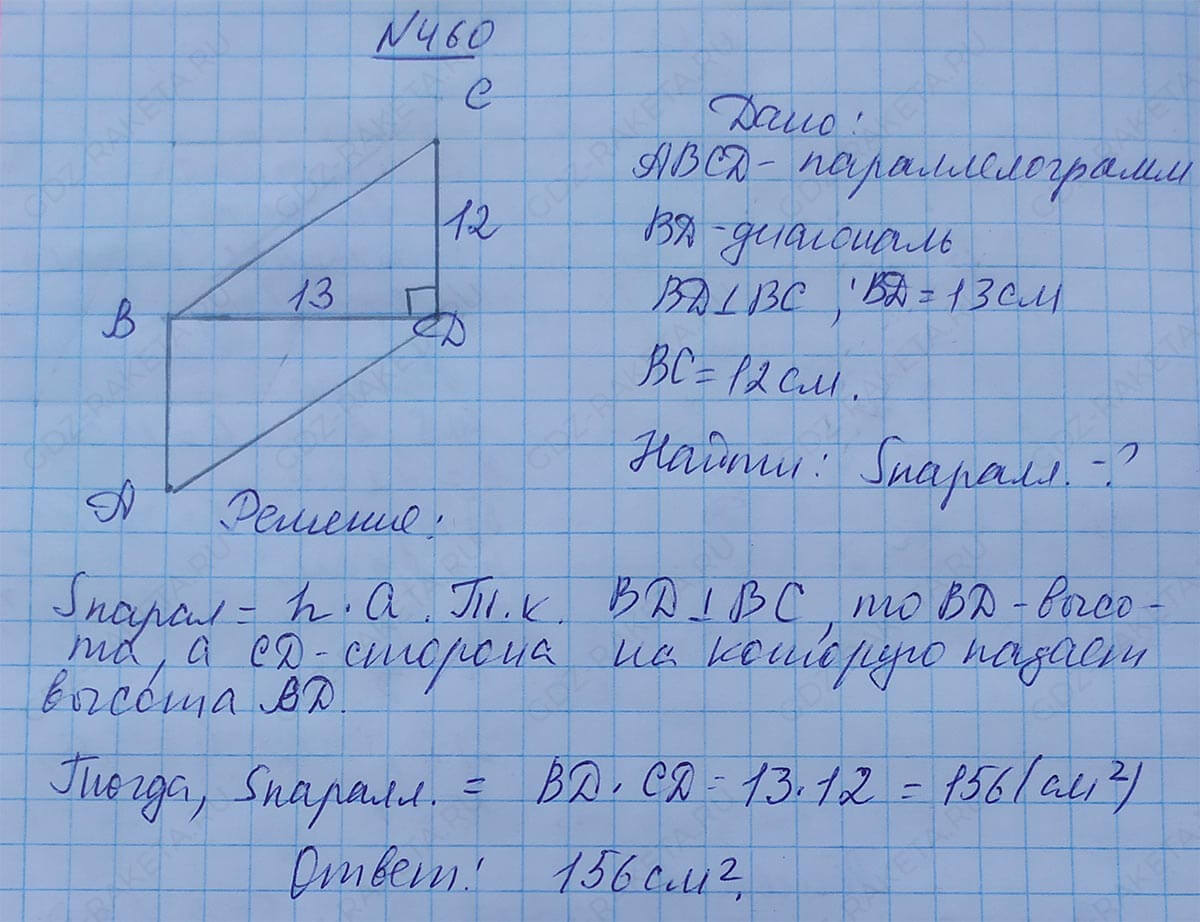 N460
C
12
13
B
D
A
Дано:
ABCD - параллелограмм
BD - диагональ
BD ⊥ BC, BD = 13 см
BC = 12 см.
Найти: Sпаралл. - ?
Решение:
Sпарал = h · a. Т.к. BD ⊥ BC, то BD - высо-
та, а CD - сторона на которую падает
высота BD.
Тогда, Sпаралл. = BD · CD = 13 · 12 = 156 (см²)
Ответ: 156 см².
GDZ-RAKETA.RU